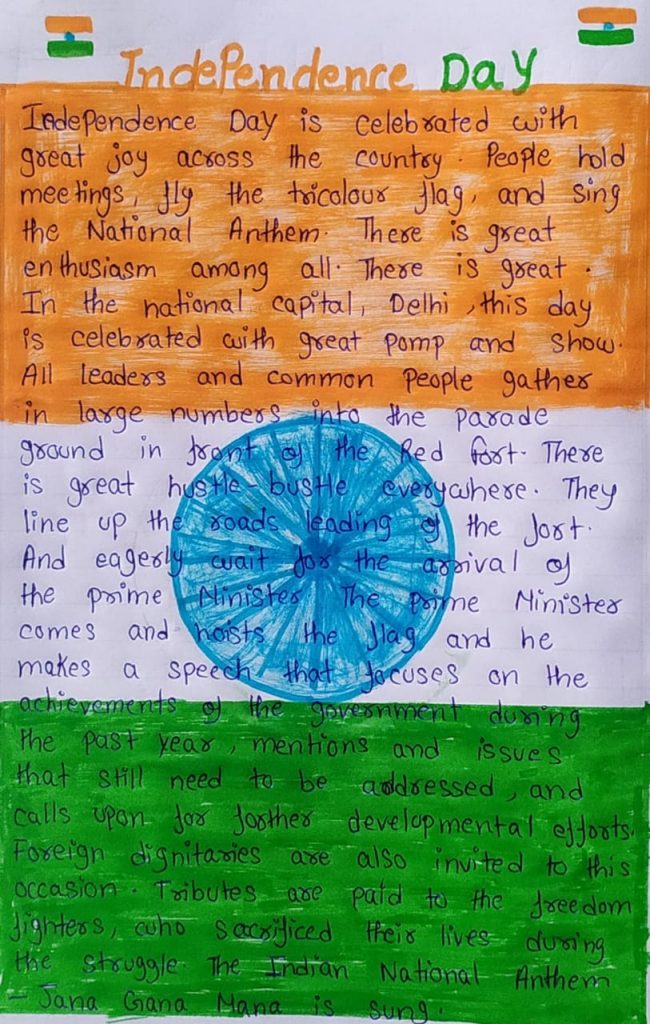 Independence Day
Independence Day is celebrated with
great joy across the country. People hold
meetings, fly the tricolour flag, and sing
the National Anthem. There is great
enthusiasm among all. There is great.
In the national capital, Delhi, this day
is celebrated with great pomp and show.
All leaders and common people gather
in large numbers into the parade
ground in front of the Red fort. There
is great hustle-bustle everywhere. They
line up the roads leading of the fort.
And eagerly wait for the arrival of
the prime Minister The prime Minister
comes and hoists the flag and he
makes a speech that focuses on the
achievements of the government during
the past year, mentions and issues
that still need to be addressed, and
calls upon for forther developmental efforts.
Foreign dignitaries are also invited to this
occasion. Tributes are paid to the freedom
fighters, who sacrificed their lives during
the struggle. The Indian National Anthem
- Jana Gana Mana is sung.